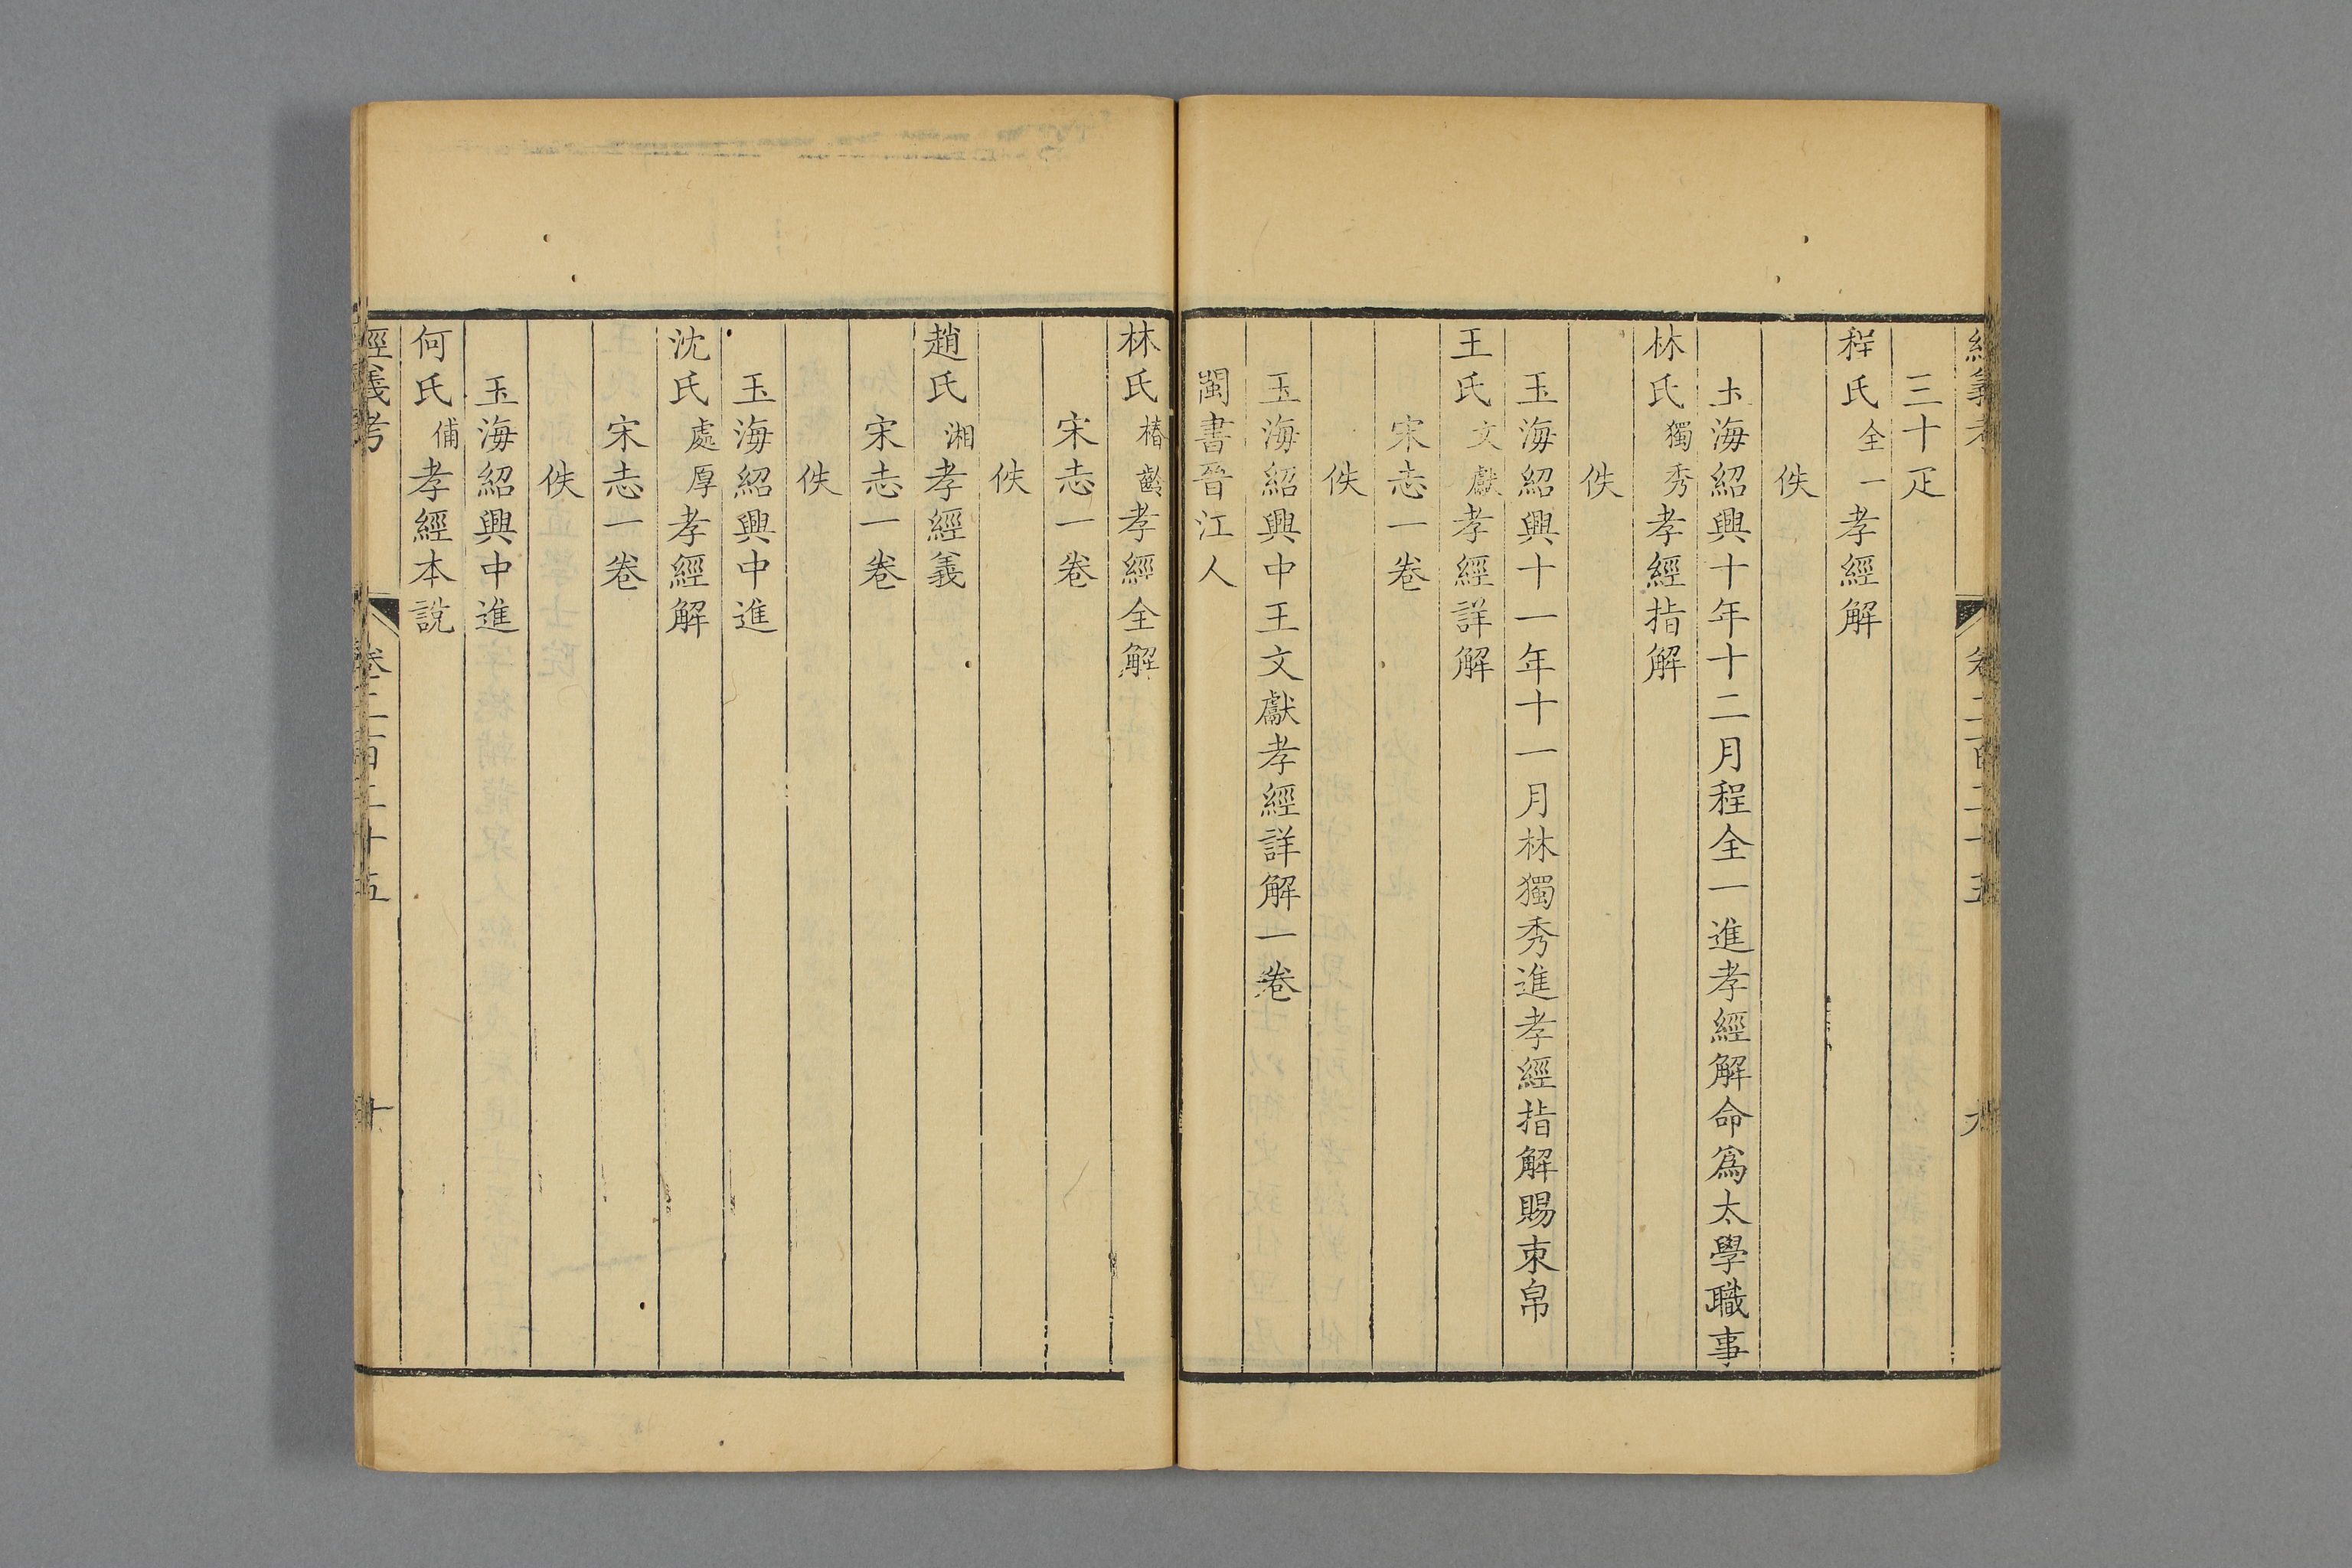 經義考 卷二百二十五 九
三十疋
程氏全一孝經解
佚
玉海紹興十年十二月程全一進孝經解命爲太學職事
林氏獨秀孝經指解
佚
玉海紹興十一年十一月林獨秀進孝經指解賜束帛
王氏文獻孝經詳解
宋志一卷
佚
玉海紹興中王文獻孝經詳解一卷
閩書晉江人
林氏椿齡孝經全解
宋志一卷
佚
趙氏湘孝經義
宋志一卷
佚
玉海紹興中進
沈氏處厚孝經解
宋志一卷
佚
玉海紹興中進
何氏備孝經本說
經義考 卷二百二十五 十